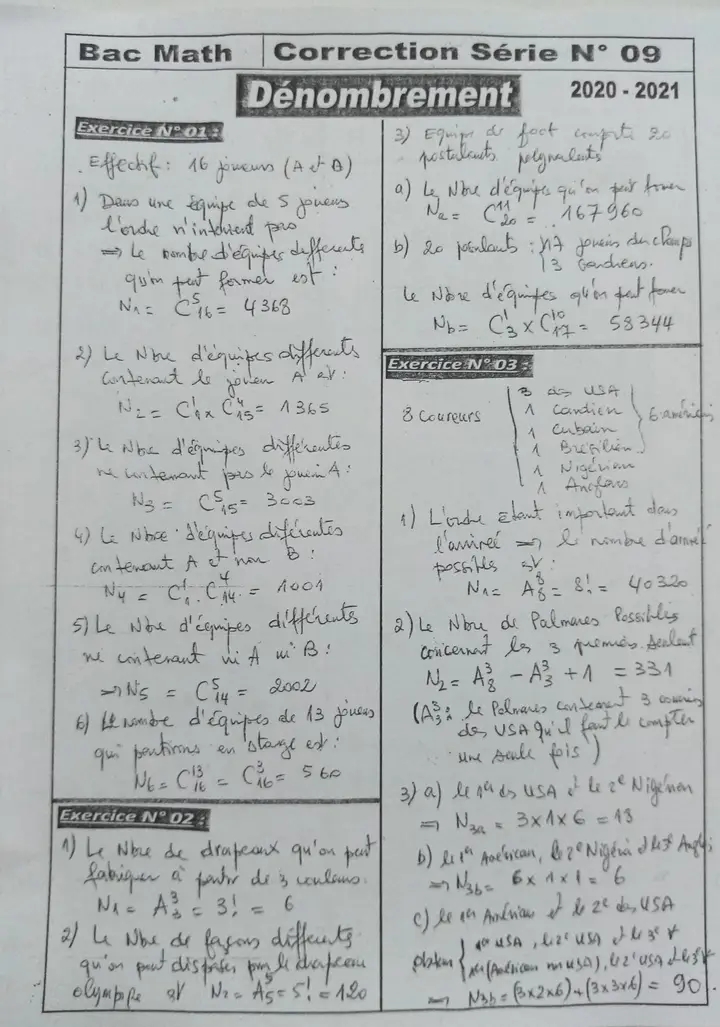 Bac Math
Correction Série N° 09
Dénombrement
2020 - 2021
Exercice N° 01 :
Effectif : 16 joueurs (A et B)
1) Dans une équipe de 5 joueurs
l'ordre n'intervient pas
⇒ Le nombre d'équipes differents
qu'on peut former est :
N₁ = C⁵₁₆ = 4368
2) Le Nbre d'équipes differents
contenant le joueur A est :
N₂ = C¹₁ x C⁴₁₅ = 1365
3) Le Nbre d'équipes différentes
ne contenant pas le joueur A :
N₃ = C⁵₁₅ = 3003
4) Le Nbre d'équipes différentes
contenant A et non B :
N₄ = C¹₁ . C⁴₁₄ = 1001
5) Le Nbre d'équipes différents
ne contenant ni A ni B :
⇒ N₅ = C⁵₁₄ = 2002
6) Le nombre d'équipes de 13 joueurs
qui partirons en stage est :
N₆ = C¹³₁₆ = C³₁₆ = 560
Exercice N° 02 :
1) Le Nbre de drapeaux qu'on peut
fabriquer à partir de 3 couleurs.
N₁ = A³₃ = 3! = 6
2) Le Nbre de façons differents
qu'on peut disposer le drapeau
olympique est N₂ = A⁵₅ = 5! = 120
3) Equipe de foot comporte 20
postulants polyvalents
a) Le Nbre d'équipes qu'on peut former
Nₐ = C¹¹₂₀ = 167960
b) 20 : { 17 joueurs du champs
13 Gardiens.
Le Nbre d'équipes qu'on peut former
N_b = C¹₃ x C¹⁰₁₇ = 58344
Exercice N° 03 :
3 des USA
8 coureurs
1 Candien
6 américains
1 Cubain
1 Brésilien
1 Nigérian
1 Anglais
1) L'ordre etant important dans
l'arrivée ⇒ le nombre d'arrivé
possibles est :
N₁ = A⁸₈ = 8! = 40320
2) Le Nbre de Palmares Possibles
concernant les 3 premiers seulement
N₂ = A³₈ - A³₃ + 1 = 331
(A³₃ : le Palmares contenant 3 coureurs
des USA qu'il faut le compter
une seule fois)
3) a) le 1er des USA et le 2e Nigérian
⇒ N₃ₐ = 3x1x6 = 18
b) le 1er Américan, le 2e Nigéria et le 3e Anglais
⇒ N₃b = 6x1x1 = 6
c) le 1er Américan et le 2e des USA
{ 1er USA, le 2e USA et le 3e ∀
1er (Américan non USA), le 2e USA et le 3e ∀
⇒ N₃b = (3x2x6) + (3x3x6) = 90